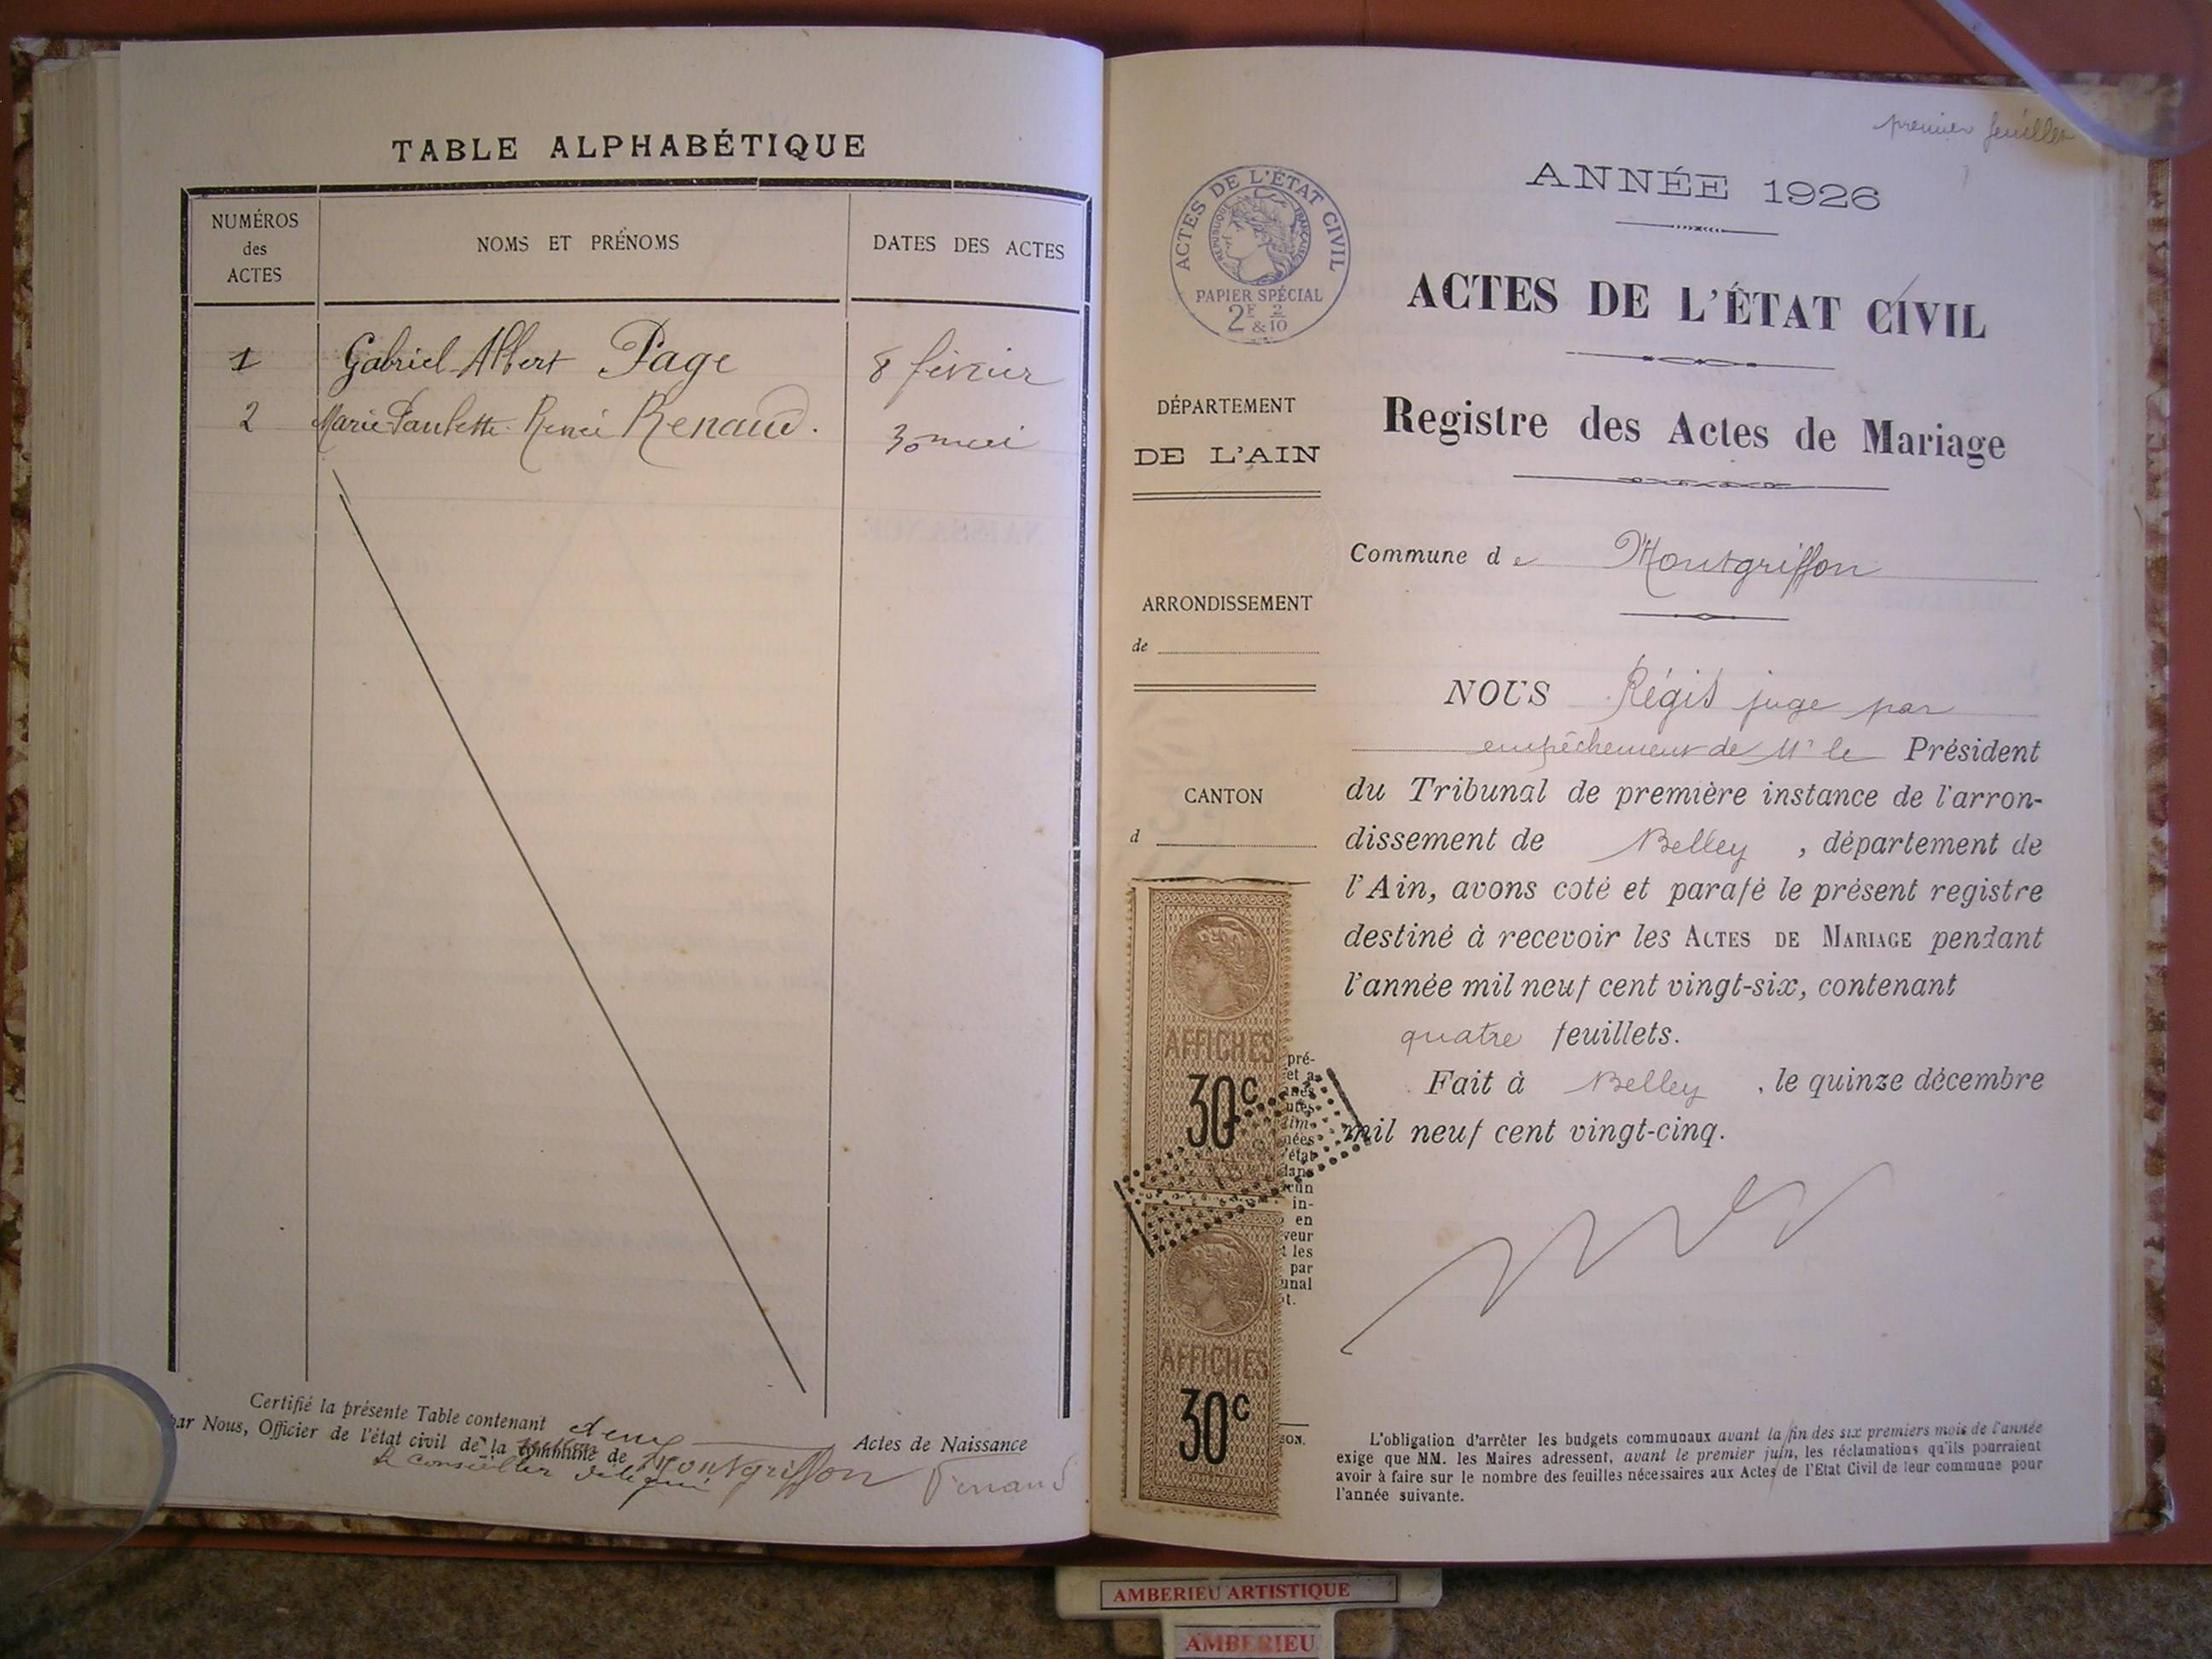 TABLE ALPHABÉTIQUE
NUMÉROS
des
ACTES
NOMS ET PRÉNOMS
DATES DES ACTES
1 Gabriel Albert Page 8 février
2 Marie Paulette Renée Renaud. 30 mai
Certifié la présente Table contenant deux Actes de Naissance
par Nous, Officier de l'état civil de la commune de Montgriffon
Le conseiller délégué
premier feuillet
ANNÉE 1926
ACTES DE L'ÉTAT CIVIL
RÉPUBLIQUE FRANÇAISE
PAPIER SPÉCIAL
2F & 2/10
ACTES DE L'ÉTAT CIVIL
Registre des Actes de Mariage
DÉPARTEMENT
DE L'AIN
ARRONDISSEMENT
de
CANTON
d
Commune de Montgriffon
NOUS Régis juge par
empêchement de Mr le Président
du Tribunal de première instance de l'arron-
dissement de Belley, département de
l'Ain, avons coté et parafé le présent registre
destiné à recevoir les ACTES DE MARIAGE pendant
l'année mil neuf cent vingt-six, contenant
quatre feuillets.
Fait à Belley, le quinze décembre
mil neuf cent vingt-cinq.
AFFICHES
30c
AFFICHES
30c
pré-
et a
état
dans
in-
en
veur
t les
par
unal
t.
SON.
L'obligation d'arrêter les budgets communaux avant la fin des six premiers mois de l'année
exige que MM. les Maires adressent, avant le premier juin, les réclamations qu'ils pourraient
avoir à faire sur le nombre des feuilles nécessaires aux Actes de l'Etat Civil de leur commune pour
l'année suivante.
AMBERIEU ARTISTIQUE
AMBERIEU